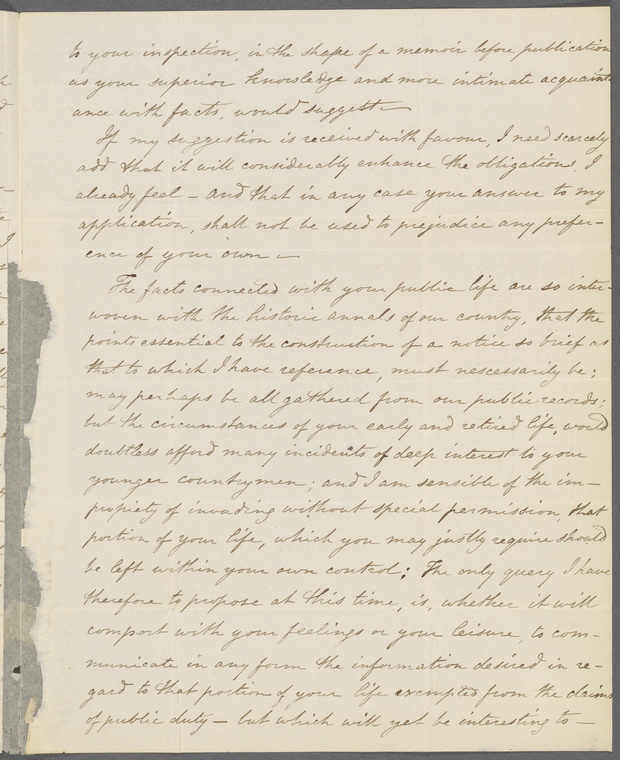 to your inspection, in the shape of a memoir before publication
as your superior knowledge and more intimate acquaint-
ance with facts, would suggest —
If my suggestion is received with favour, I need scarcely
add that it will considerably enhance the obligations, I
already feel — and that in any case your answer to my
application, shall not be used to prejudice any prefer-
ence of your own —
The facts connected with your public life are so inter-
woven with the historic annals of our country, that the
points essential to the construction of a notice so brief as
that to which I have reference, must nescessarily be;
may perhaps be all gathered from our public records;
but the circumstances of your early and retired life, would
doubtless afford many incidents of deep interest to your
younger countrymen; and I am sensible of the im-
propriety of invading without special permission, that
portion of your life, which you may justly require should
be left within your own control; The only query I have
therefore to propose at this time, is, whether it will
comport with your feelings or your leisure, to com-
municate in any form the information desired in re-
gard to that portion of your life exempted from the claims
of public duty — but which will yet be interesting to —